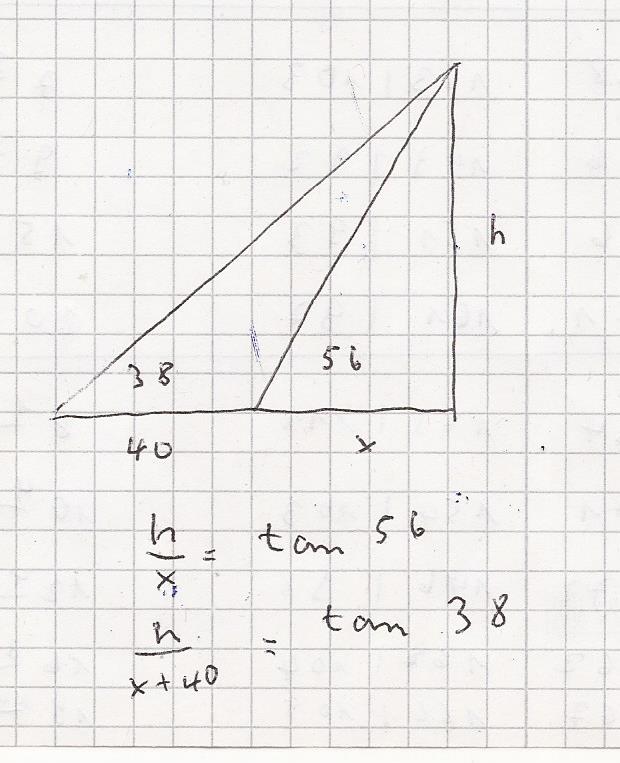 h
38 56
40 x
h/x = tan 56
h/(x+40) = tan 38